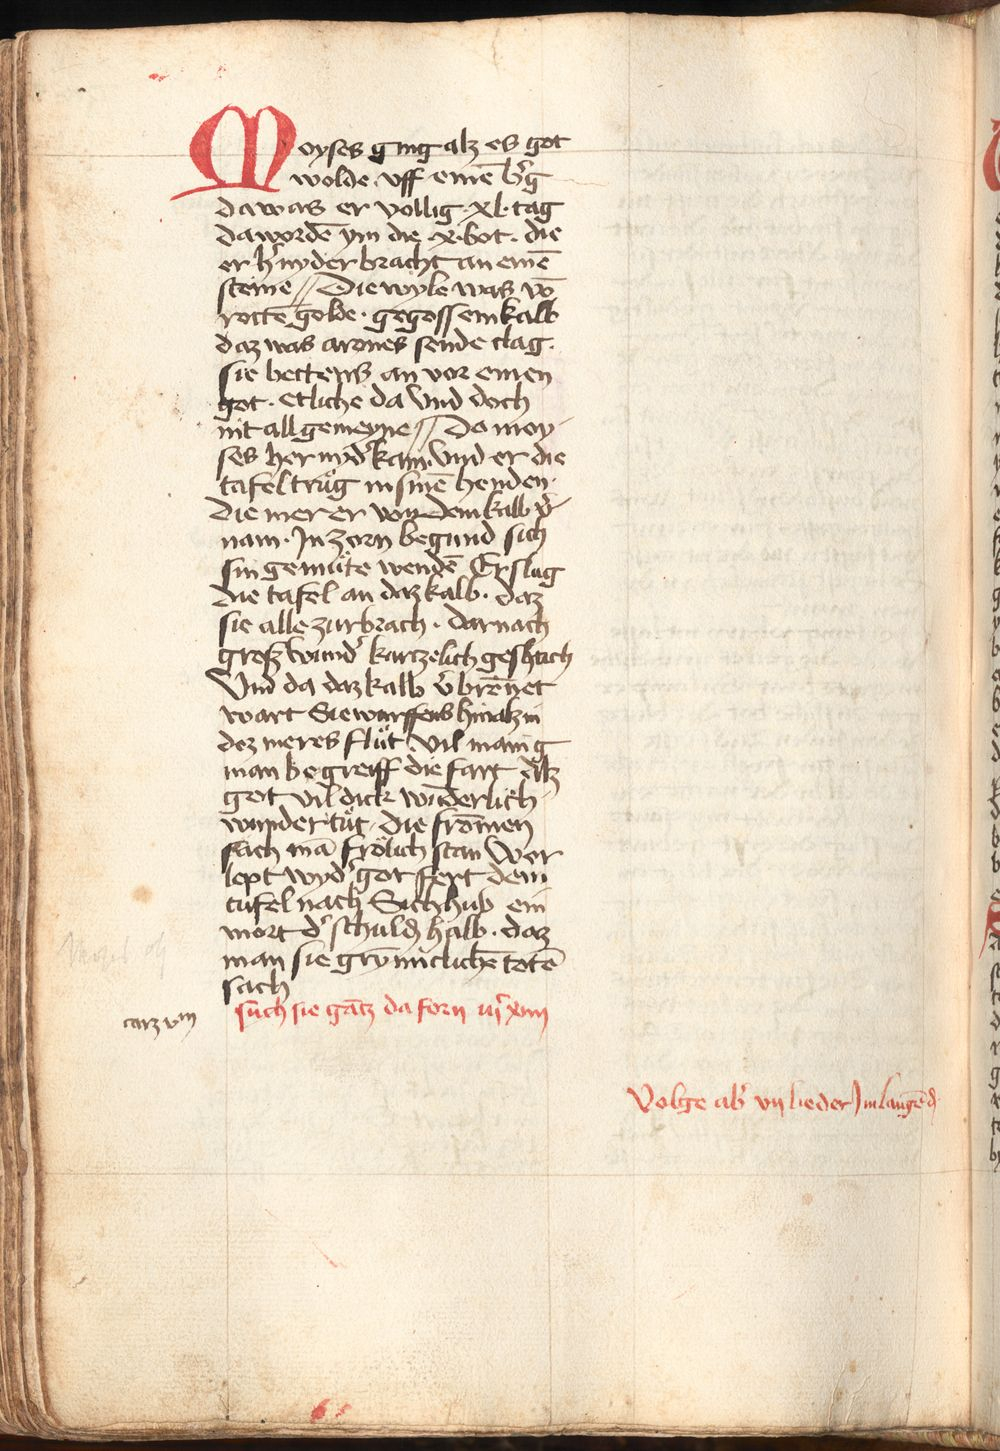 Moyses ging alz es got
wolde. uff einē b'g
da was er vollig. xl. tag
da wordē ym die .x. bot. die
er h'nyder bracht an einē
steine // Die wyle was vō
rottē golde. gegossen kalb
daz was arones sende clag.
sie bettens an vor einen
got. etliche da Und doch
nit all gemeyne // Da moy-
ses her nyd' kam. Und er die
tafel trůg in sinē henden.
die mer er von dem kalb v'-
nam. In zorn begund sich
sin gemůte wendē Er slug
die tafel an daz kalb. daz
sie alle zurbrach. darnach
groß wund' kurtzelich geschach
Und da daz kalb v'brēnet
wart Sie wurffens hin alz in
dez meres flůt Vil manig
man begreiff die fart Alz
got vil dick wūderlich
wunder tůt. Die fromen
sach mā frölich stan Wer
lept wyd' got fert dem
tufel nach Sich hub ein
mort d' schuld halb. daz
man sie grymmclichē totē
sach
such sie gātz da forn
Volge ab' vij lieder Im langē d